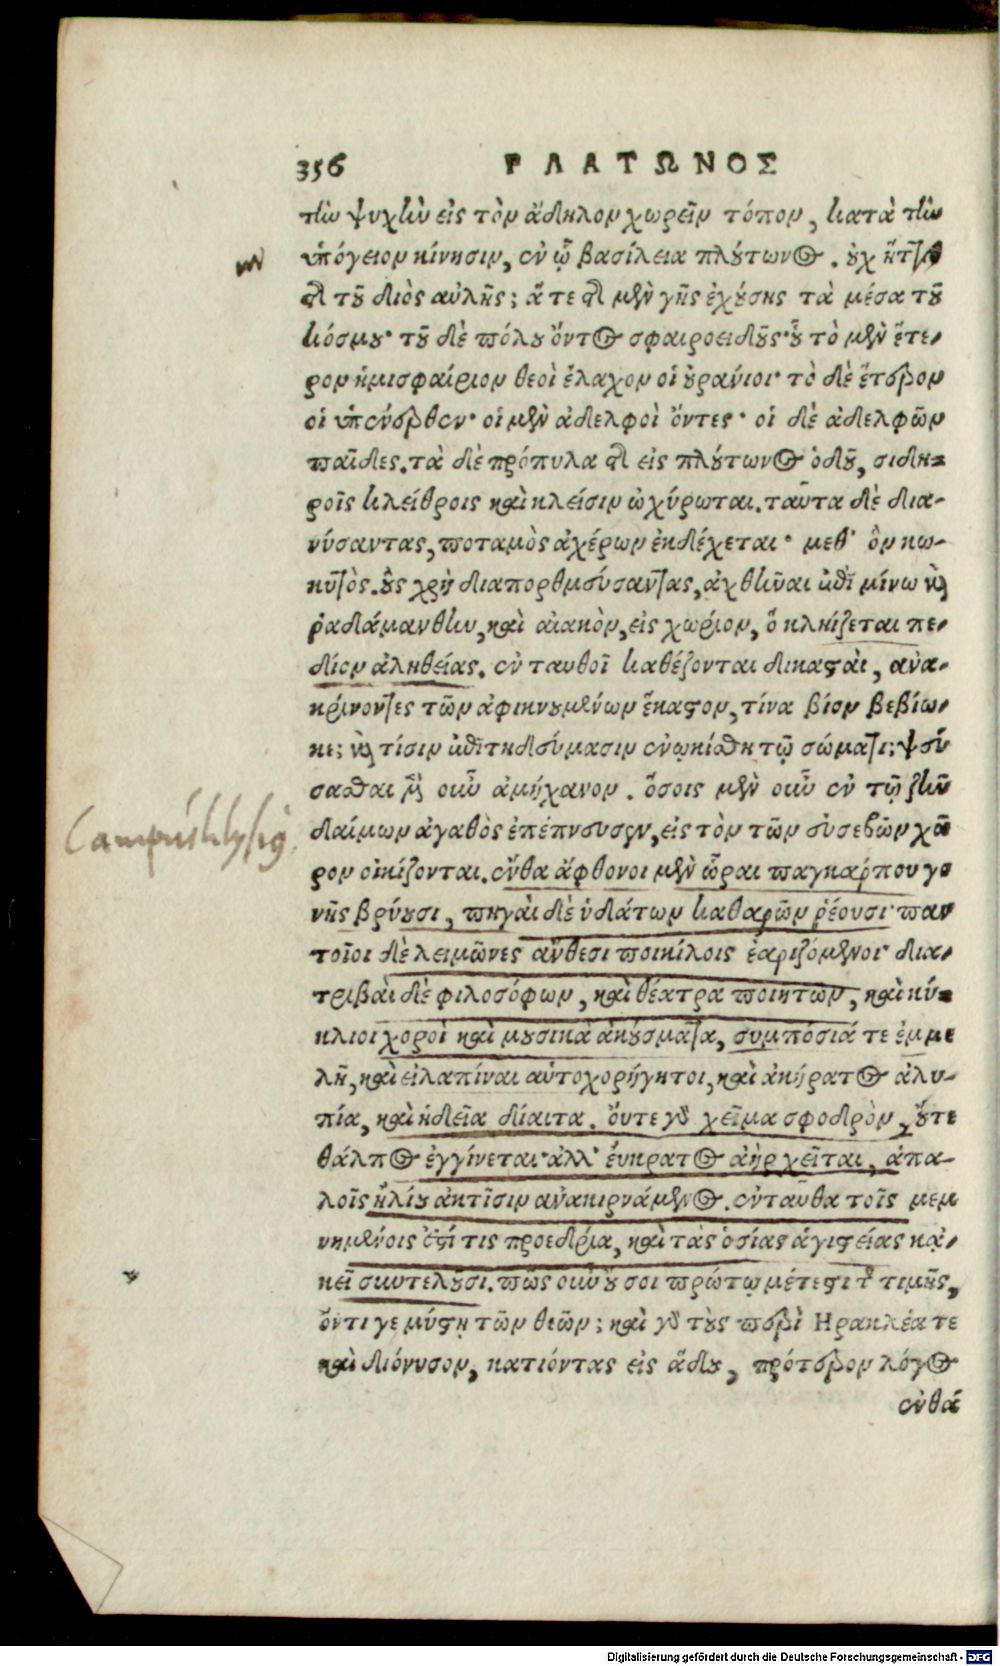 356 ΠΛΑΤΩΝΟΣ
τὴν ψυχὴν εἰς τὸν ἄδηλον χωρεῖν τόπον, κατὰ τὴν
ὑπόγειον κίνησιν, ἐν ᾧ βασίλεια πλούτωνος. οὐχ ἥττω
τῆς τοῦ διὸς αὐλῆς; ἅτε τῆς μὲν γῆς ἐχούσης τὰ μέσα τοῦ
κόσμου· τοῦ δὲ πόλου ὄντος σφαιροειδοῦς· οὗ τὸ μὲν ἕτε-
ρον ἡμισφαίριον θεοὶ ἔλαχον οἱ οὐράνιοι· τὸ δὲ ἕτερον
οἱ ὑπένερθεν· οἱ μὲν ἀδελφοὶ ὄντες· οἱ δὲ ἀδελφῶν
παῖδες. τὰ δὲ πρόπυλα τῆς εἰς πλούτωνος ὁδοῦ, σιδη-
ροῖς κλείθροις καὶ κλείσιν ὠχύρωται. ταῦτα δὲ δια-
νύσαντας, ποταμὸς ἀχέρων ἐκδέχεται· μεθ' ὃν κω-
κυτὸς. οὓς χρὴ διαπορθμεύσαντας, ἀχθῆναι ἐπὶ μίνω καὶ
ῥαδάμανθην, καὶ αἰακὸν, εἰς χωρίον, ὃ κληίζεται πε-
δίον ἀληθείας. ἐν ταυθοῖ καθέζονται δικασταὶ, ἀνα-
κρίνοντες τῶν ἀφικνουμένων ἕκαστον, τίνα βίον βεβίω-
κε; καὶ τίσιν ἐπιτηδεύμασιν ἐνῳκίσθη τῷ σώματι; ψεύ
σασθαι μὲν οὖν ἀμήχανον. ὅσοις μὲν οὖν ἐν τῷ ζῆν
Campus elysius
δαίμων ἀγαθὸς ἐπέπνευσεν, εἰς τὸν τῶν εὐσεβῶν χῶ
ρον οἰκίζονται. ἔνθα ἄφθονοι μὲν ὧραι παγκάρπου γο
νῆς βρύουσι, πηγαὶ δὲ ὑδάτων καθαρῶν ῥέουσι· παν
τοῖοι δὲ λειμῶνες ἄνθεσι ποικίλοις ἐαριζόμενοι· δια-
τριβαὶ δὲ φιλοσόφων, καὶ θέατρα ποιητῶν, καὶ κύ-
κλιοι χοροὶ καὶ μουσικὰ ἀκούσματα, συμπόσιά τε ἐμμε
λῆ, καὶ εἰλαπίναι αὐτοχορήγητοι, καὶ ἀκήρατος ἀλυ-
πία, καὶ ἡδεῖα δίαιτα. οὔτε γὰρ χεῖμα σφοδρὸν, οὔτε
θάλπος ἐγγίνεται· ἀλλ' εὔκρατος ἀὴρ χεῖται, ἁπα-
λοῖς ἡλίου ἀκτῖσιν ἀνακιρνάμενος. ἐνταῦθα τοῖς μεμ
υημένοις ἐστί τις προεδρία, καὶ τὰς ὁσίας ἁγιστείας κᾀ-
κεῖ συντελοῦσι. πῶς οὖν οὐ σοι πρώτῳ μέτεστι τῆς τιμῆς,
ὄντι γε μύστῃ τῶν θεῶν; καὶ γὰρ τοὺς περὶ Ηρακλέα τε
καὶ διόνυσον, κατιόντας εἰς ᾅδου, πρότερον λόγος
ἐνθά
Digitalisierung gefördert durch die Deutsche Forschungsgemeinschaft - DFG